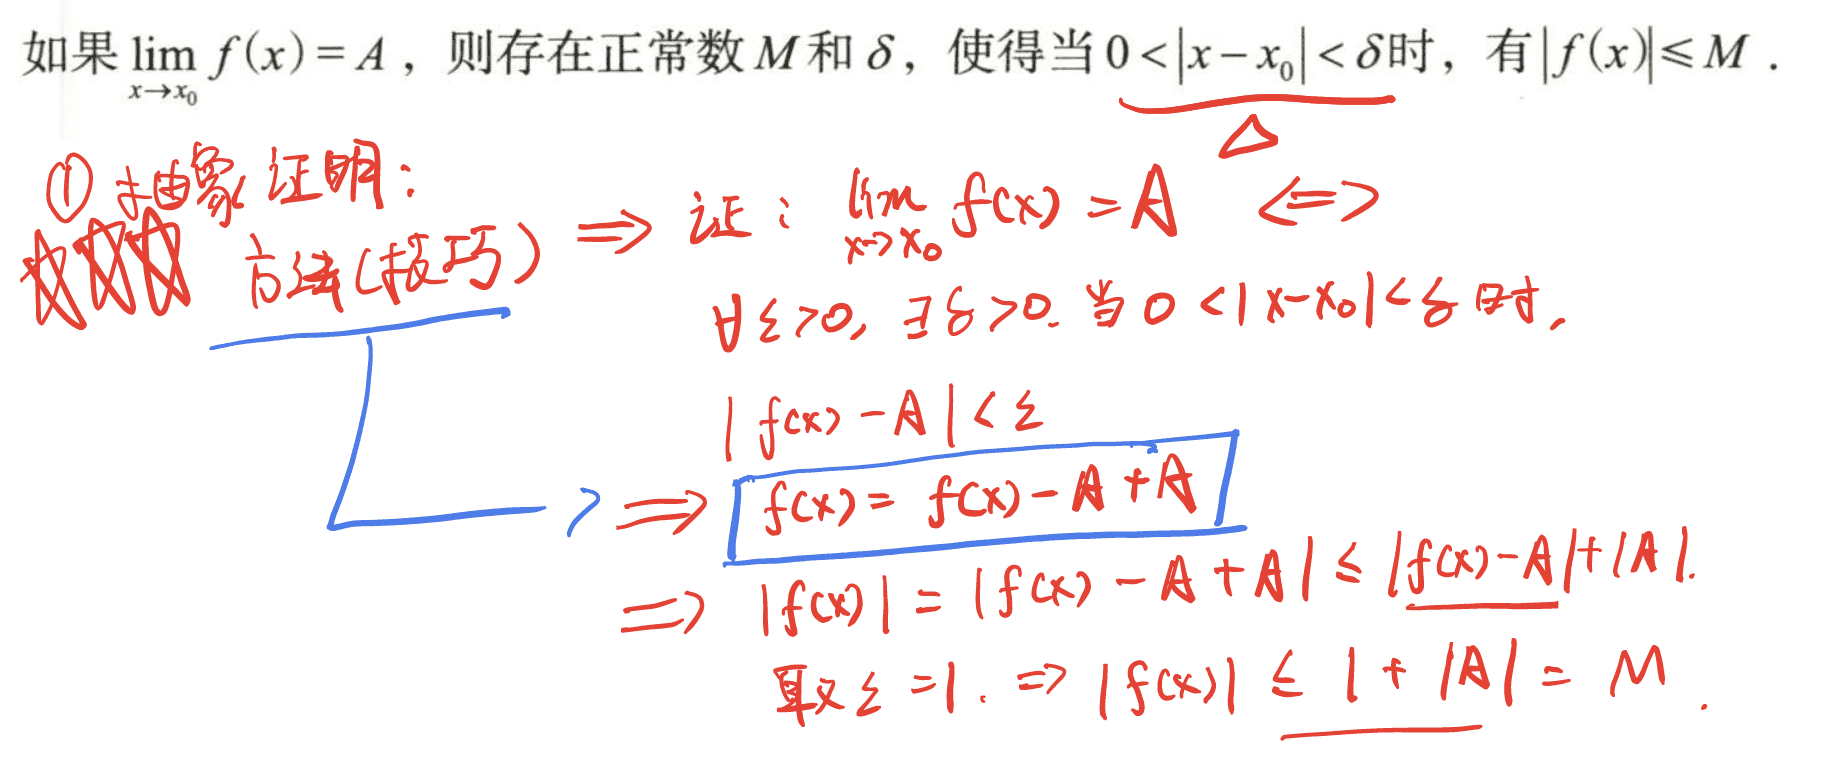 如果 lim f(x) = A，则存在正常数 M 和 δ，使得当 0 < |x − x₀| < δ 时，有 |f(x)| ≤ M .
x→x₀
① 抽象证明：
方法(技巧) ⇒ 证： lim f(x) = A ⇔
x→x₀
∀ε>0, ∃δ>0. 当 0 < |x−x₀| < δ 时,
|f(x) − A| < ε
⇒ f(x) = f(x) − A + A
⇒ |f(x)| = |f(x) − A + A| ≤ |f(x) − A| + |A|.
取 ε = 1. ⇒ |f(x)| ≤ 1 + |A| = M .